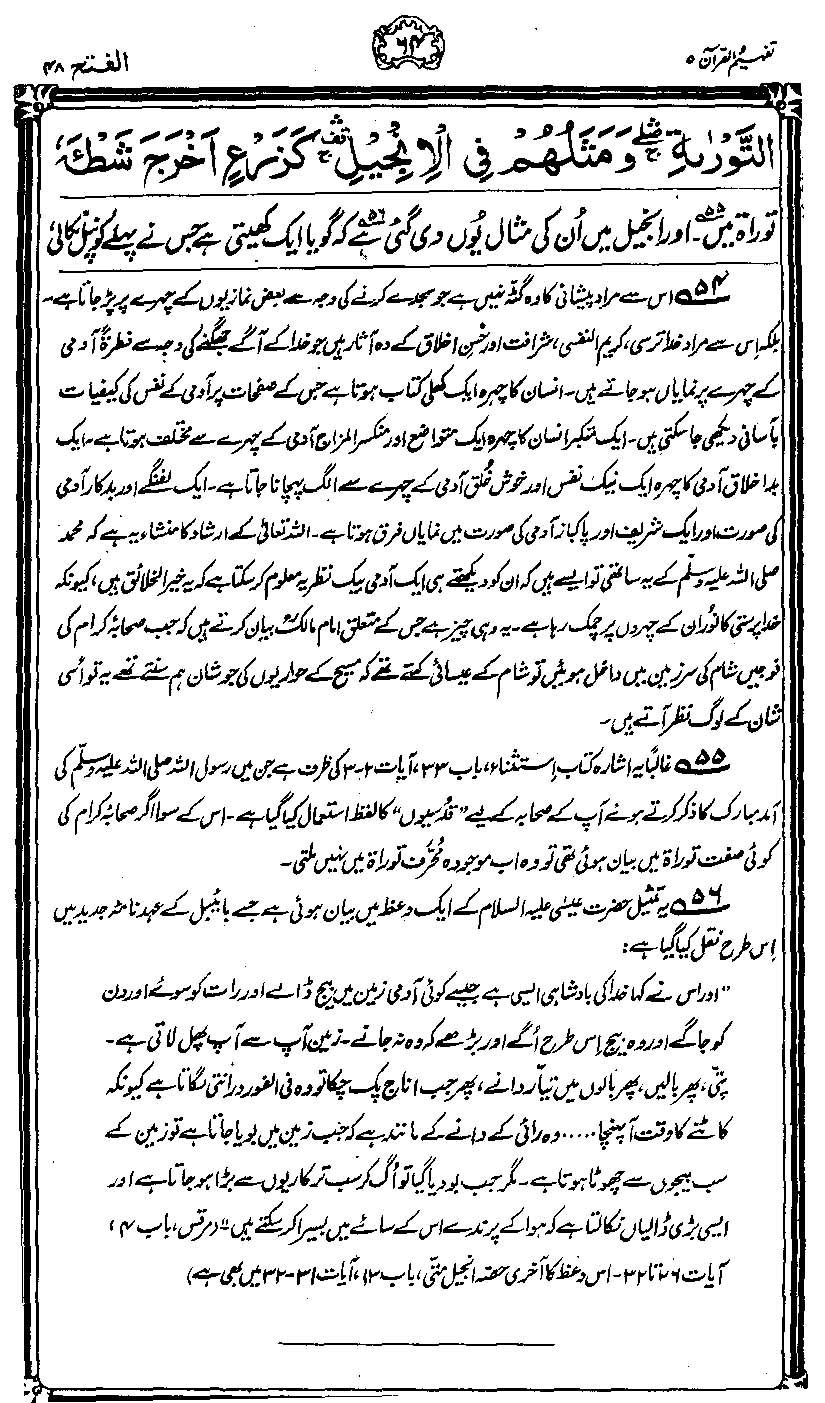 تفہیم القرآن ۵
۶۴
الفتح ۴۸
التَّوْرٰىةِ ۛۖ وَمَثَلُهُمْ فِي الْاِنْجِيْلِ ۛ۫ كَزَرْعٍ اَخْرَجَ شَطْـَٔهٗ
توراۃ میں۵۵۔ اور انجیل میں اُن کی مثال یُوں دی گئی ہے۵۶ کہ گویا ایک کھیتی ہے جس نے پہلے کونپل نکالی
۵۴ اس سے مراد پیشانی کا وہ گٹہ نہیں ہے جو سجدے کرنے کی وجہ سے بعض نمازیوں کے چہرے پر پڑ جاتا ہے۔
بلکہ اس سے مراد خدا ترسی، کریم النفسی، شرافت اور حُسنِ اخلاق کے وہ آثار ہیں جو خدا کے آگے جھکنے کی وجہ سے فطرۃً آدمی
کے چہرے پر نمایاں ہو جاتے ہیں۔ انسان کا چہرہ ایک کھلی کتاب ہوتا ہے جس کے صفحات پر آدمی کے نفس کی کیفیات
بآسانی دیکھی جا سکتی ہیں۔ ایک متکبر انسان کا چہرہ ایک متواضع اور منکسر المزاج آدمی کے چہرے سے مختلف ہوتا ہے۔ ایک
بد اخلاق آدمی کا چہرہ ایک نیک نفس اور خوش خُلق آدمی کے چہرے سے الگ پہچانا جاتا ہے۔ ایک لفنگے اور بدکار آدمی
کی صورت اور ایک شریف اور پاکباز آدمی کی صورت میں نمایاں فرق ہوتا ہے۔ اللہ تعالیٰ کے ارشاد کا منشاء یہ ہے کہ محمد
صلی اللہ علیہ وسلّم کے یہ ساتھی تو ایسے ہیں کہ ان کو دیکھتے ہی ایک آدمی بیک نظر یہ معلوم کر سکتا ہے کہ یہ خیر الخلائق ہیں، کیونکہ
خدا پرستی کا نُور ان کے چہروں پر چمک رہا ہے۔ یہ وہی چیز ہے جس کے متعلق امام مالکؒ بیان کرتے ہیں کہ جب صحابۂ کرام کی
فوجیں شام کی سرزمین میں داخل ہوئیں تو شام کے عیسائی کہتے تھے کہ مسیح کے حواریوں کی جو شان ہم سنتے تھے یہ تو اُسی
شان کے لوگ نظر آتے ہیں۔
۵۵ غالباً یہ اشارہ کتاب اِستثناء، باب ۳۳، آیات ۲-۳ کی طرف ہے جن میں رسول اللہ صلی اللہ علیہ وسلّم کی
آمد مبارک کا ذکر کرتے ہوئے آپ کے صحابہ کے لیے "قدسیوں" کا لفظ استعمال کیا گیا ہے۔ اس کے سوا اگر صحابۂ کرام کی
کوئی صفت توراۃ میں بیان ہوئی تھی تو وہ اب موجودہ مُحَرَّف توراۃ میں نہیں ملتی۔
۵۶ یہ تمثیل حضرت عیسٰی علیہ السلام کے ایک وعظ میں بیان ہوئی ہے جسے بائیبل کے عہد نامۂ جدید میں
اِس طرح نقل کیا گیا ہے:
"اور اس نے کہا خدا کی بادشاہی ایسی ہے جیسے کوئی آدمی زمین میں بیج ڈالے اور رات کو سوئے اور دن
کو جاگے اور وہ بیج اِس طرح اُگے اور بڑھے کہ وہ نہ جانے۔ زمین آپ سے آپ پھل لاتی ہے۔
پتّی، پھر بالیں، پھر بالوں میں تیار دانے، پھر جب اناج پک چکا تو وہ فی الفور درانتی لگاتا ہے کیونکہ
کاٹنے کا وقت آ پہنچا ..... وہ رائی کے دانے کے مانند ہے کہ جب زمین میں بویا جاتا ہے تو زمین کے
سب بیجوں سے چھوٹا ہوتا ہے۔ مگر جب بو دیا گیا تو اُگ کر سب ترکاریوں سے بڑا ہو جاتا ہے اور
ایسی بڑی ڈالیاں نکالتا ہے کہ ہوا کے پرندے اس کے سائے میں بسیرا کر سکتے ہیں" (مرقس، باب ۴،
آیات ۲۶ تا ۳۲۔ اس وعظ کا آخری حصّہ انجیل متّی، باب ۱۳، آیات ۳۱-۳۲ میں بھی ہے)